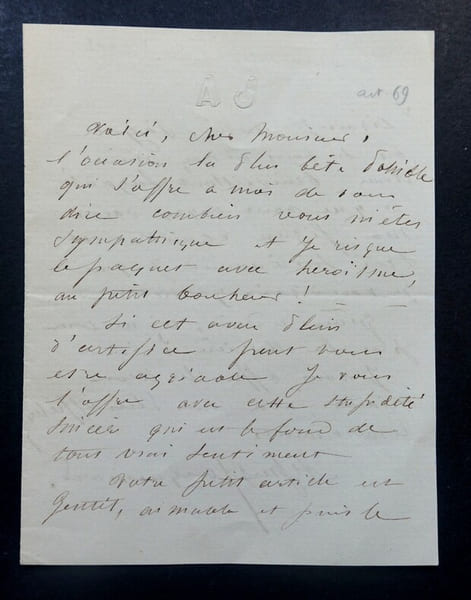 A J
art 69
Voici, cher Monsieur,
l'occasion la plus bête possible
qui s'offre a moi de vous
dire combien vous m'êtes
sympathique et je risque
le paquet avec heroïsme,
au petit bonheur !
Si cet aveu plein
d'artifice peut vous
etre agréable je vous
l'offre avec cette stupidité
sincère qui est le fond de
tout vrai sentiment
Votre petit article est
gentil, aimable et puis le